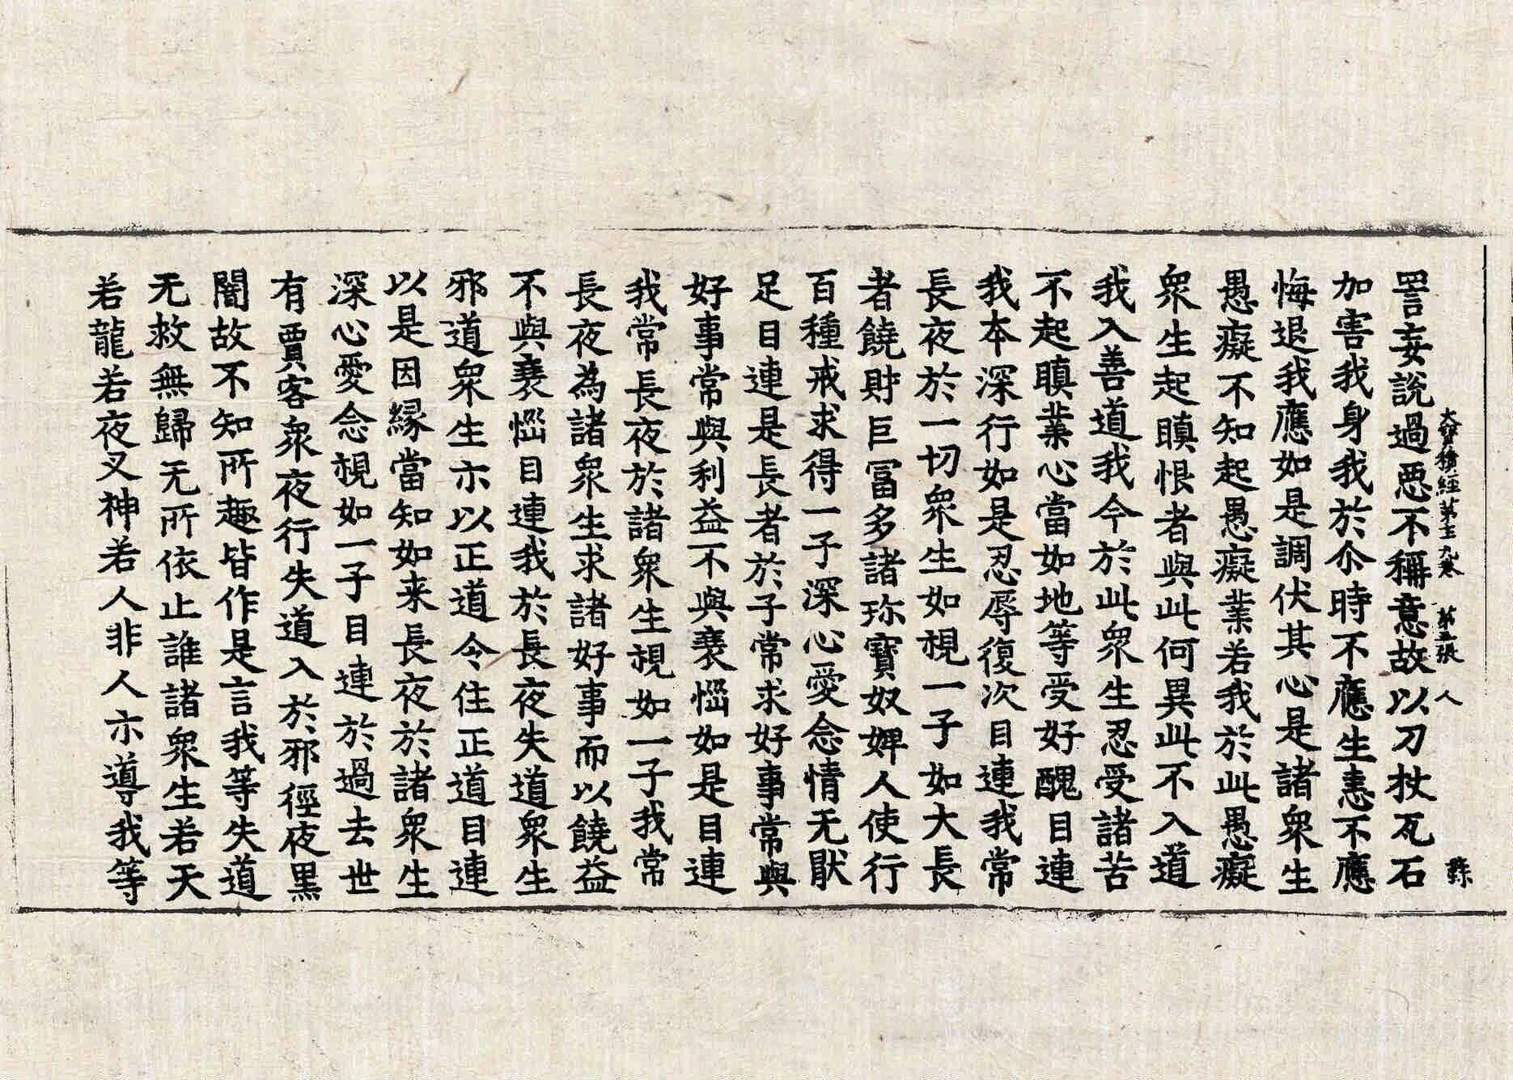 大寶積經第七十九卷 第五張 人
詈妄說過惡不稱意故以刀杖瓦石
加害我身我於尒時不應生恚不應
悔退我應如是調伏其心是諸衆生
愚癡不知起愚癡業若我於此愚癡
衆生起瞋恨者與此何異此不入道
我入善道我今於此衆生忍受諸苦
不起瞋業心當如地等受好醜目連
我本深行如是忍辱復次目連我常
長夜於一切衆生如視一子如大長
者饒財巨冨多諸珎寶奴婢人使行
百種戒求得一子深心愛念情无猒
足目連是長者於子常求好事常與
好事常與利益不與衰惱如是目連
我常長夜於諸衆生視如一子我常
長夜為諸衆生求諸好事而以饒益
不與衰惱目連我於長夜失道衆生
邪道衆生亦以正道令住正道目連
以是因縁當知如来長夜於諸衆生
深心愛念視如一子目連於過去世
有賈客衆夜行失道入於邪徑夜黒
闇故不知所趣皆作是言我等失道
无救無歸无所依止誰諸衆生若天
若龍若夜叉神若人非人亦導我等